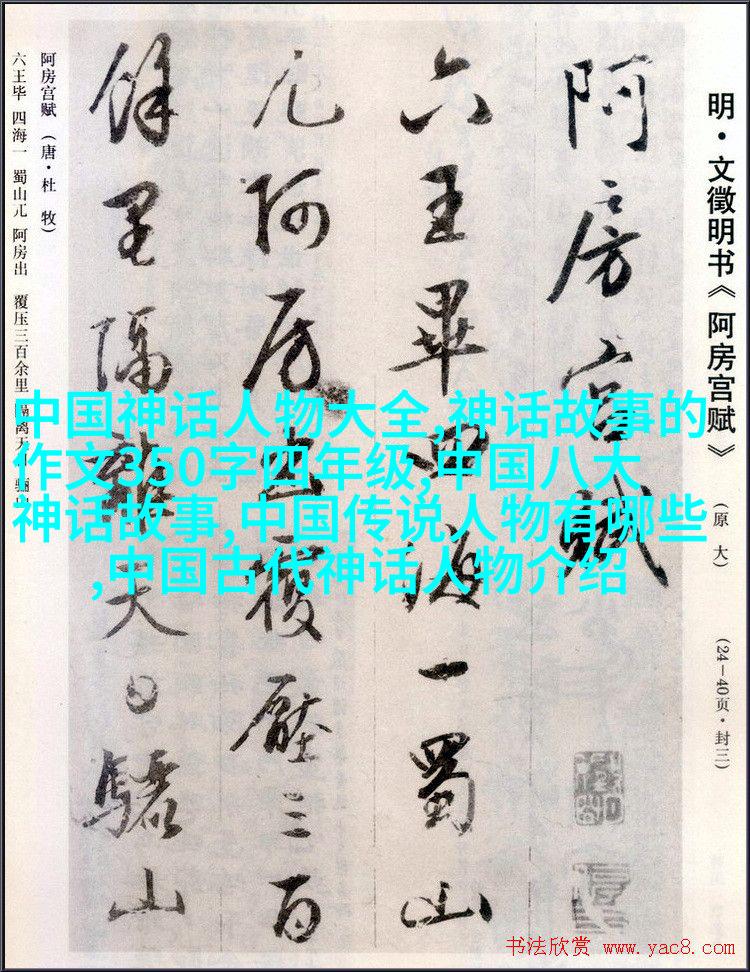 明·文徵明书《阿房宫赋》
(原大)
(24—40页·封三)
阿房宫赋
六王畢四海一蜀山
兀阿房出覆壓三百
餘里隔離天日驪山
阿房宫赋(唐·杜牧)
六王毕 四海一 蜀山兀 阿房出 覆压三百余里 隔离天日 骊山
中国神话人物大全,神话故事的
作文350字四年级,中国八大
神话故事,中国传说人物有哪些
,中国古代神话人物介绍
书法欣赏 www.yac8.com